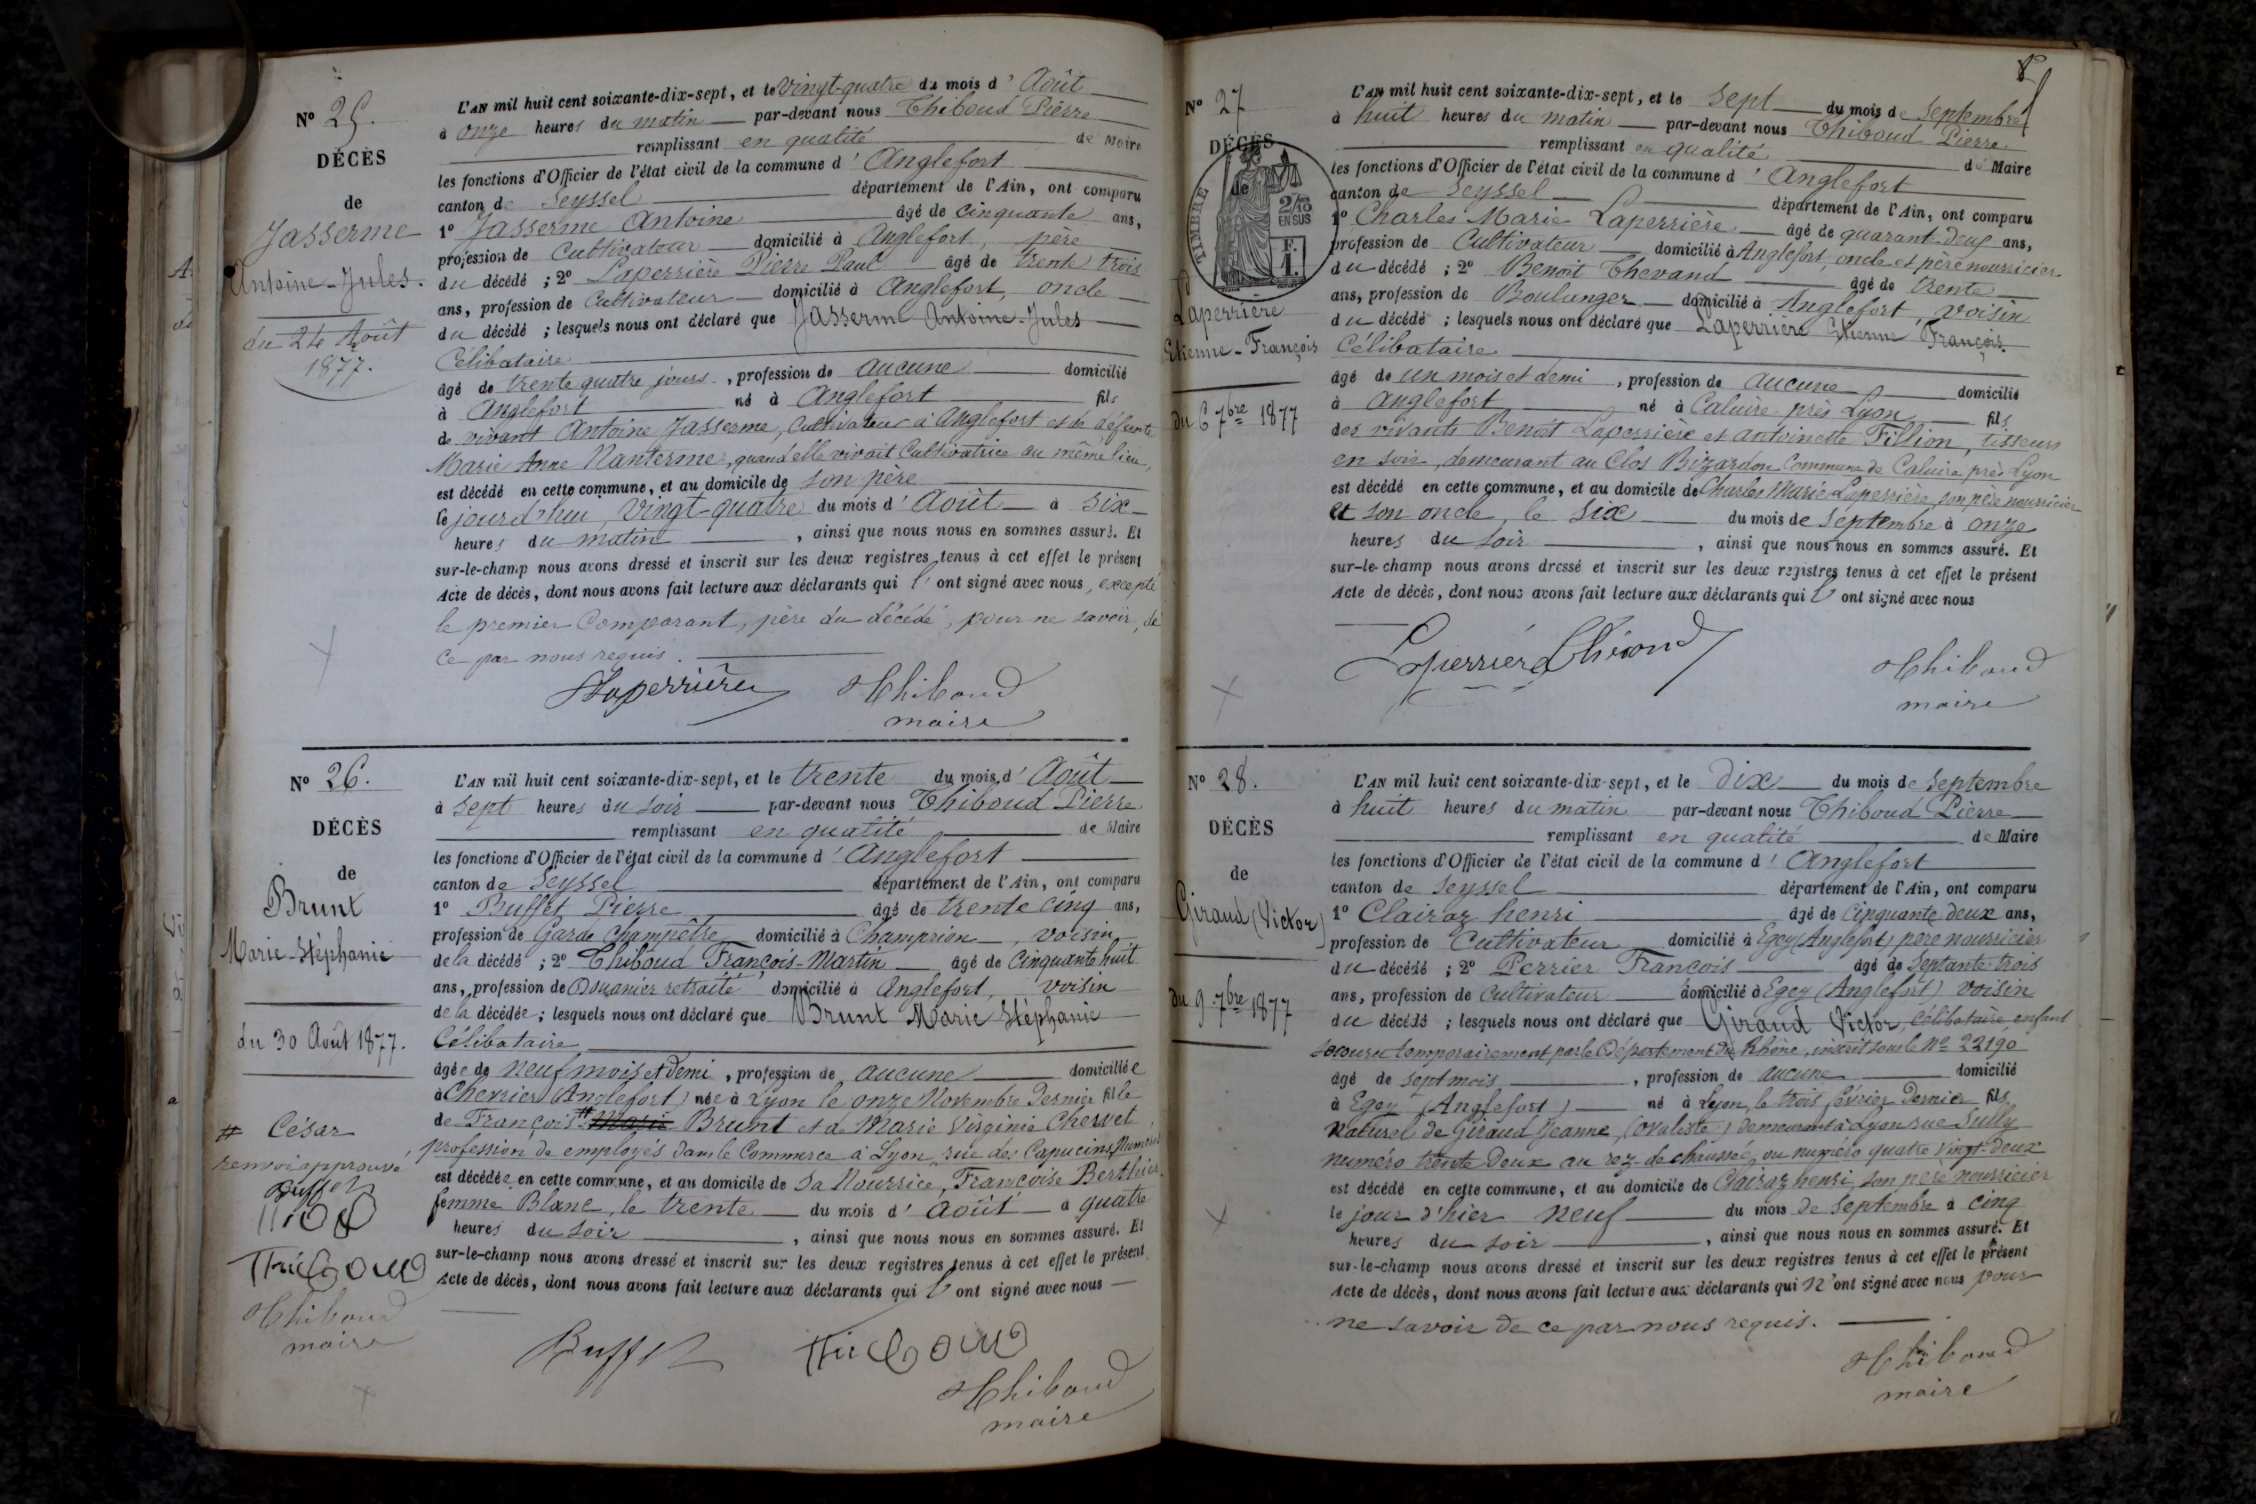 Nº 25.
DÉCÈS
de
Jasserme
Antoine-Jules.
du 24 Août
1877.
L'AN mil huit cent soixante-dix-sept, et le vingt-quatre du mois d'Août
à onze heures du matin par-devant nous Thiboud Pierre
remplissant en qualité de Maire
les fonctions d'Officier de l'état civil de la commune d'Anglefort
canton de Seyssel département de l'Ain, ont comparu
1º Jasserme Antoine âgé de cinquante ans,
profession de Cultivateur domicilié à Anglefort, père
du décédé ; 2º Laperrière Pierre Paul âgé de trente trois
ans, profession de Cultivateur domicilié à Anglefort, oncle
du décédé ; lesquels nous ont déclaré que Jasserme Antoine-Jules
Célibataire
âgé de trente quatre jours, profession de aucune domicilié
à Anglefort né à Anglefort fils
de vivant Antoine Jasserme, Cultivateur à Anglefort et de défunte
Marie Anne Nanterme, quand elle vivait Cultivatrice au même lieu,
est décédé en cette commune, et au domicile de son père
le jourd'hui, vingt-quatre du mois d'Août à six
heures du matin, ainsi que nous nous en sommes assuré. Et
sur-le-champ nous avons dressé et inscrit sur les deux registres tenus à cet effet le présent
Acte de décès, dont nous avons fait lecture aux déclarants qui l'ont signé avec nous, excepté
le premier Comparant, père du décédé, pour ne savoir, de
ce par nous requis.
Laperrière Thiboud
maire
Nº 26.
DÉCÈS
de
Brunt
Marie-Stéphanie
du 30 Août 1877.
# César
renvoi approuvé
Buffet
Thiboud
Thiboud
maire
L'AN mil huit cent soixante-dix-sept, et le trente du mois d'Août
à sept heures du soir par-devant nous Thiboud Pierre
remplissant en qualité de Maire
les fonctions d'Officier de l'état civil de la commune d'Anglefort
canton de Seyssel département de l'Ain, ont comparu
1º Buffet Pierre âgé de trente cinq ans,
profession de Garde Champêtre domicilié à Champrion, voisin
de la décédé ; 2º Thiboud François-Martin âgé de Cinquante huit
ans, profession de Douanier retraité domicilié à Anglefort, voisin
de la décédée ; lesquels nous ont déclaré que Brunt Marie Stéphanie
Célibataire
âgée de neuf mois et demi, profession de aucune domiciliée
à Chevrier (Anglefort) née à Lyon le onze Novembre Dernier fille
de François # Marie Brunt et de Marie Virginie Chervet,
profession de employés dans le Commerce à Lyon, rue des Capucins,
est décédée en cette commune, et au domicile de sa Nourrice, Françoise Berthier
femme Blanc, le trente du mois d'Août à quatre
heures du soir, ainsi que nous nous en sommes assuré. Et
sur-le-champ nous avons dressé et inscrit sur les deux registres tenus à cet effet le présent
Acte de décès, dont nous avons fait lecture aux déclarants qui l'ont signé avec nous
Buffet Thiboud
Thiboud
maire
8
Nº 27
DÉCÈS
de
TIMBRE
2/10
EN SUS
F.
1.
Laperrière
Etienne-François
du 6 7bre 1877
L'AN mil huit cent soixante-dix-sept, et le sept du mois de Septembre
à huit heures du matin par-devant nous Thiboud Pierre
remplissant en qualité de Maire
les fonctions d'Officier de l'état civil de la commune d'Anglefort
canton de Seyssel département de l'Ain, ont comparu
1º Charles Marie Laperrière âgé de quarant-deux ans,
profession de Cultivateur domicilié à Anglefort, oncle et père nourricier
du décédé ; 2º Benoît Thevand âgé de trente
ans, profession de Boulanger domicilié à Anglefort, voisin
du décédé ; lesquels nous ont déclaré que Laperrière Etienne François
Célibataire
âgé de un mois et demi, profession de aucune domicilié
à Anglefort né à Caluire près Lyon fils
des vivants Benoit Laperrière et Antoinette Fillion, tisseurs
en soie, demeurant au Clos Bizardon Commune de Caluire près Lyon
est décédé en cette commune, et au domicile de Charles Marie Laperrière, son père nourricier
et son oncle, le six du mois de septembre à onze
heures du soir, ainsi que nous nous en sommes assuré. Et
sur-le-champ nous avons dressé et inscrit sur les deux registres tenus à cet effet le présent
Acte de décès, dont nous avons fait lecture aux déclarants qui l'ont signé avec nous
Laperrière
Thiboud
maire
Nº 28.
DÉCÈS
de
Giraud (Victor)
du 9 7bre 1877
L'AN mil huit cent soixante-dix-sept, et le dix du mois de septembre
à huit heures du matin par-devant nous Thiboud Pierre
remplissant en qualité de Maire
les fonctions d'Officier de l'état civil de la commune d'Anglefort
canton de Seyssel département de l'Ain, ont comparu
1º Clairaz henri âgé de Cinquante deux ans,
profession de Cultivateur domicilié à Egey (Anglefort) père nourricier
du décédé ; 2º Perrier François âgé de Septante trois
ans, profession de Cultivateur domicilié à Egey (Anglefort) voisin
du décédé ; lesquels nous ont déclaré que Giraud Victor, Célibataire, enfant
secouru temporairement par le Département du Rhône, inscrit sous le Nº 22190
âgé de sept mois, profession de aucune domicilié
à Egey (Anglefort) né à Lyon, le trois février Dernier fils
Naturel de Giraud Jeanne, (Ovaliste) demeurant à Lyon rue Sully
numéro trente Deux au rez-de-chaussée, ou numéro quatre vingt-deux
est décédé en cette commune, et au domicile de Clairaz henri, son père nourricier
le jour d'hier neuf du mois de Septembre à cinq
heures du soir, ainsi que nous nous en sommes assuré. Et
sur-le-champ nous avons dressé et inscrit sur les deux registres tenus à cet effet le présent
Acte de décès, dont nous avons fait lecture aux déclarants qui n'ont signé avec nous pour
ne savoir de ce par nous requis.
Thiboud
maire